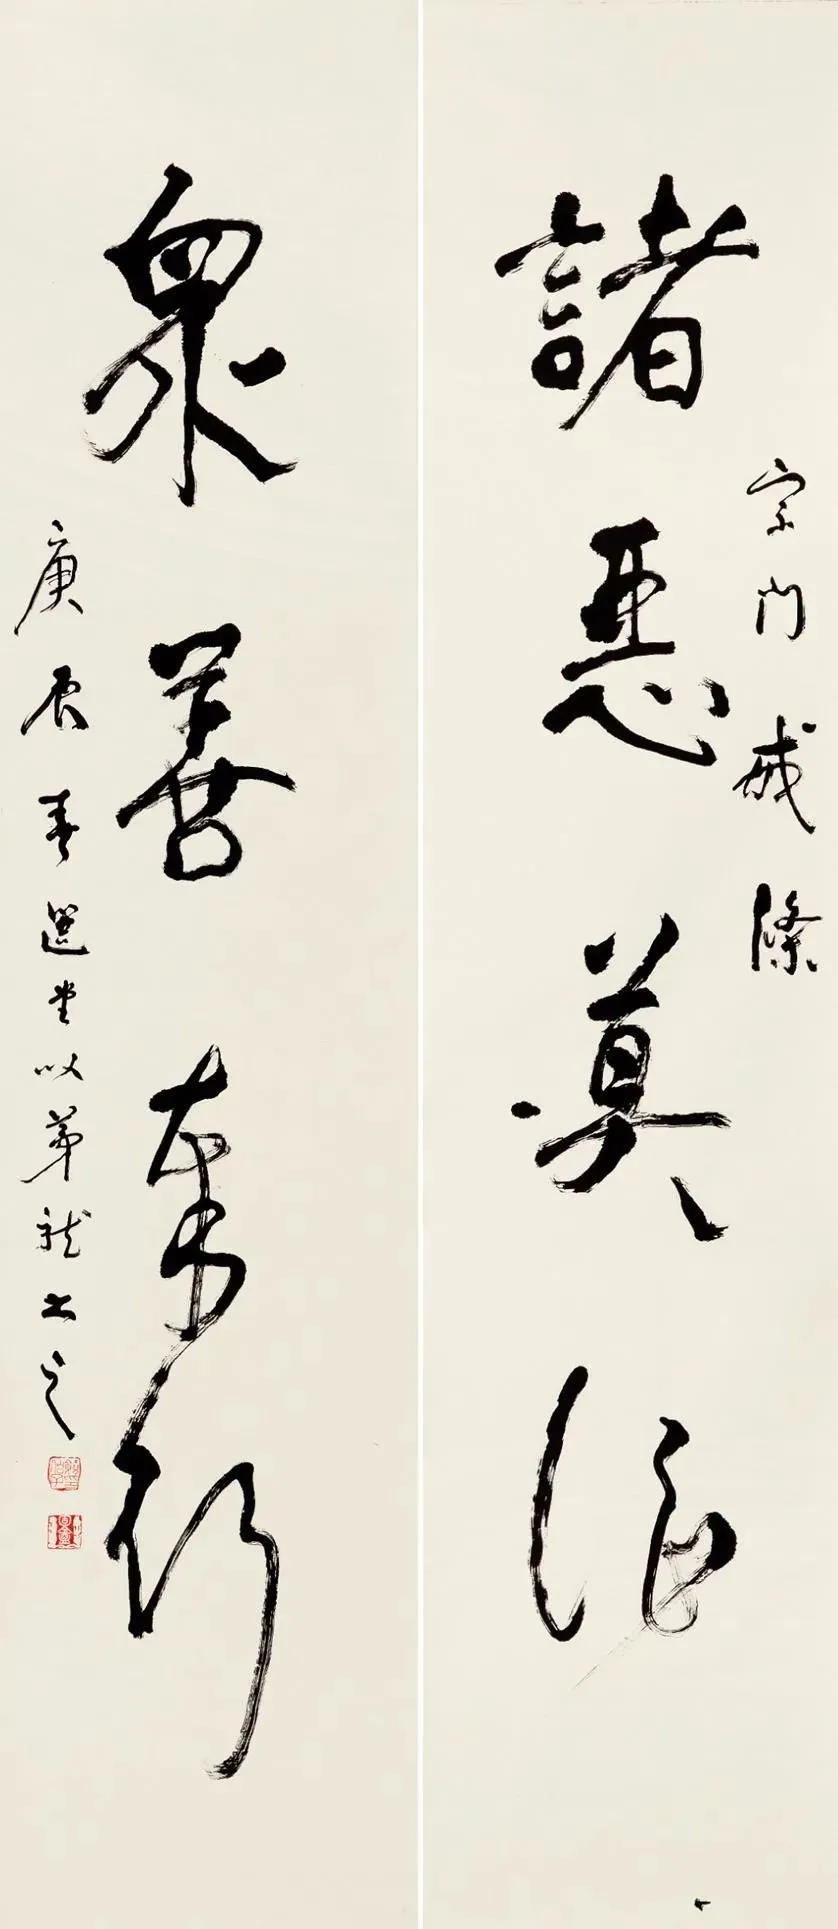 宗門戒條
諸惡莫作
眾善奉行
庚辰春選堂以茅龍書之